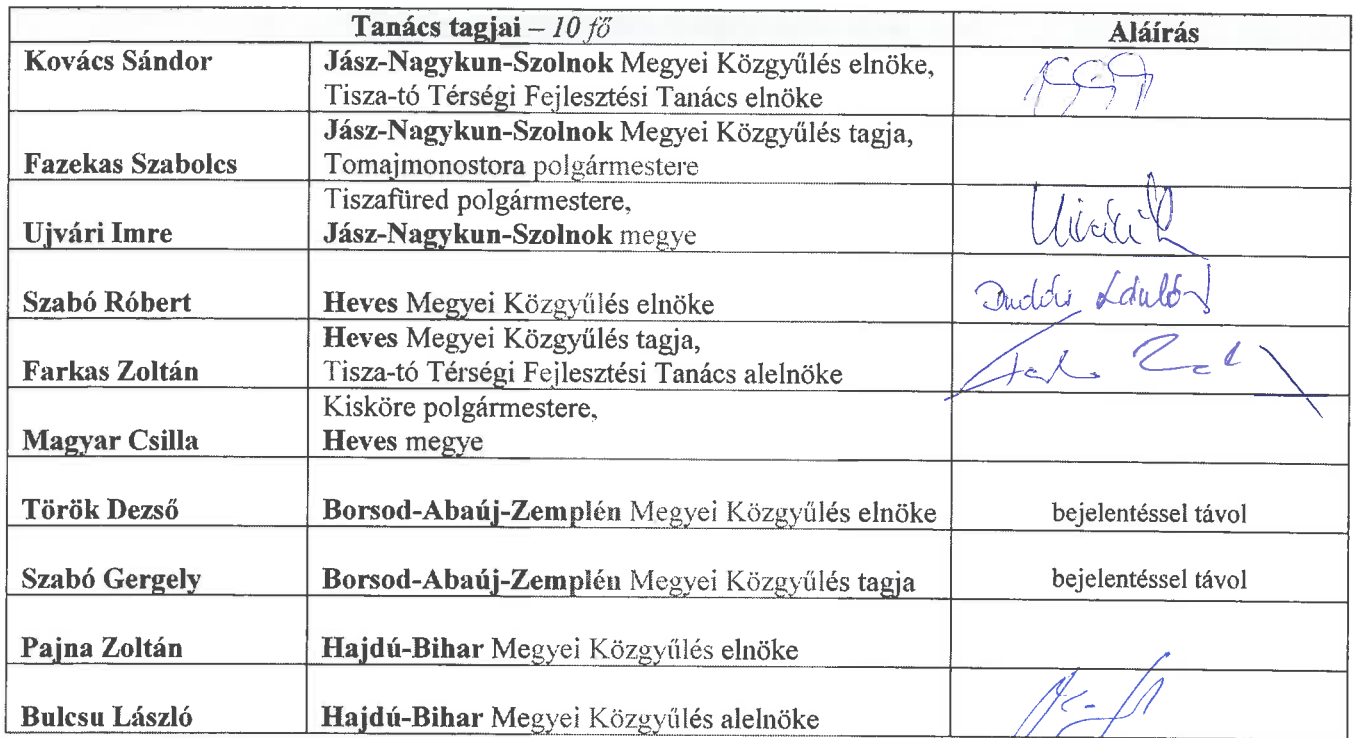 Tanács tagjai – 10 fő Aláírás
Kovács Sándor Jász-Nagykun-Szolnok Megyei Közgyűlés elnöke,
Tisza-tó Térségi Fejlesztési Tanács elnöke
Jász-Nagykun-Szolnok Megyei Közgyűlés tagja,
Fazekas Szabolcs Tomajmonostora polgármestere
Tiszafüred polgármestere,
Ujvári Imre Jász-Nagykun-Szolnok megye
Szabó Róbert Heves Megyei Közgyűlés elnöke
Heves Megyei Közgyűlés tagja,
Farkas Zoltán Tisza-tó Térségi Fejlesztési Tanács alelnöke
Kisköre polgármestere,
Magyar Csilla Heves megye
Török Dezső Borsod-Abaúj-Zemplén Megyei Közgyűlés elnöke bejelentéssel távol
Szabó Gergely Borsod-Abaúj-Zemplén Megyei Közgyűlés tagja bejelentéssel távol
Pajna Zoltán Hajdú-Bihar Megyei Közgyűlés elnöke
Bulcsu László Hajdú-Bihar Megyei Közgyűlés alelnöke